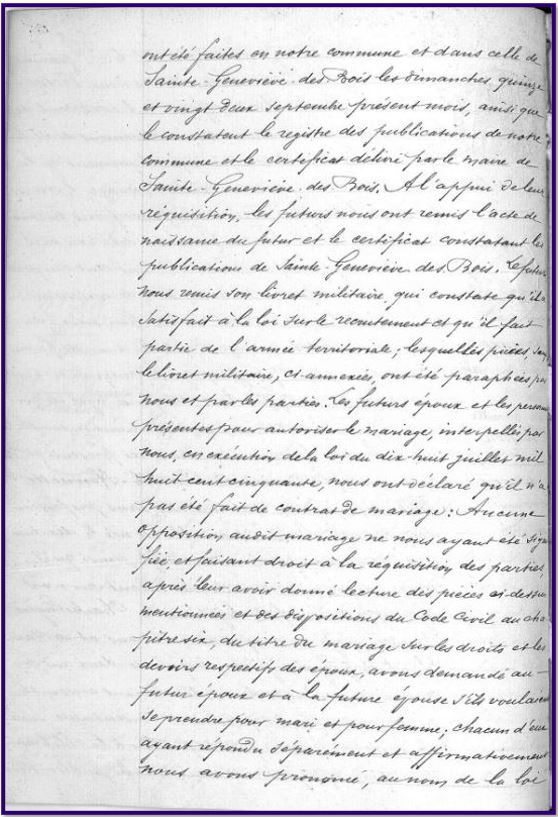 ont été faites en notre commune et dans celle de
Sainte-Geneviève des Bois les dimanches quinze
et vingt deux septembre présent mois, ainsi que
le constatent le registre des publications de notre
commune et le certificat délivré par le maire de
Sainte-Geneviève des Bois. A l'appui de leur
réquisition, les futurs nous ont remis l'acte de
naissance du futur et le certificat constatant les
publications de Sainte Geneviève des Bois. Le futur
nous remis son livret militaire qui constate qu'il a
satisfait à la loi sur le recrutement et qu'il fait
partie de l'armée territoriale; lesquelles pièces, sauf
le livret militaire, ci-annexées, ont été paraphées par
nous et par les parties. Les futurs époux et les personnes
présentes pour autoriser le mariage, interpellés par
nous, en exécution de la loi du dix-huit juillet mil
huit cent cinquante, nous ont déclaré qu'il n'a
pas été fait de contrat de mariage: Aucune
opposition audit mariage ne nous ayant été signi
fiée et faisant droit à la réquisition des parties,
après leur avoir donné lecture des pièces ci-dessus
mentionnées et des dispositions du Code Civil au cha
pitre six, du titre du mariage sur les droits et les
devoirs respectifs des époux, avons demandé au
futur époux et à la future épouse s'ils voulaient
se prendre pour mari et pour femme; chacun d'eux
ayant répondu séparément et affirmativement
nous avons prononcé, au nom de la loi